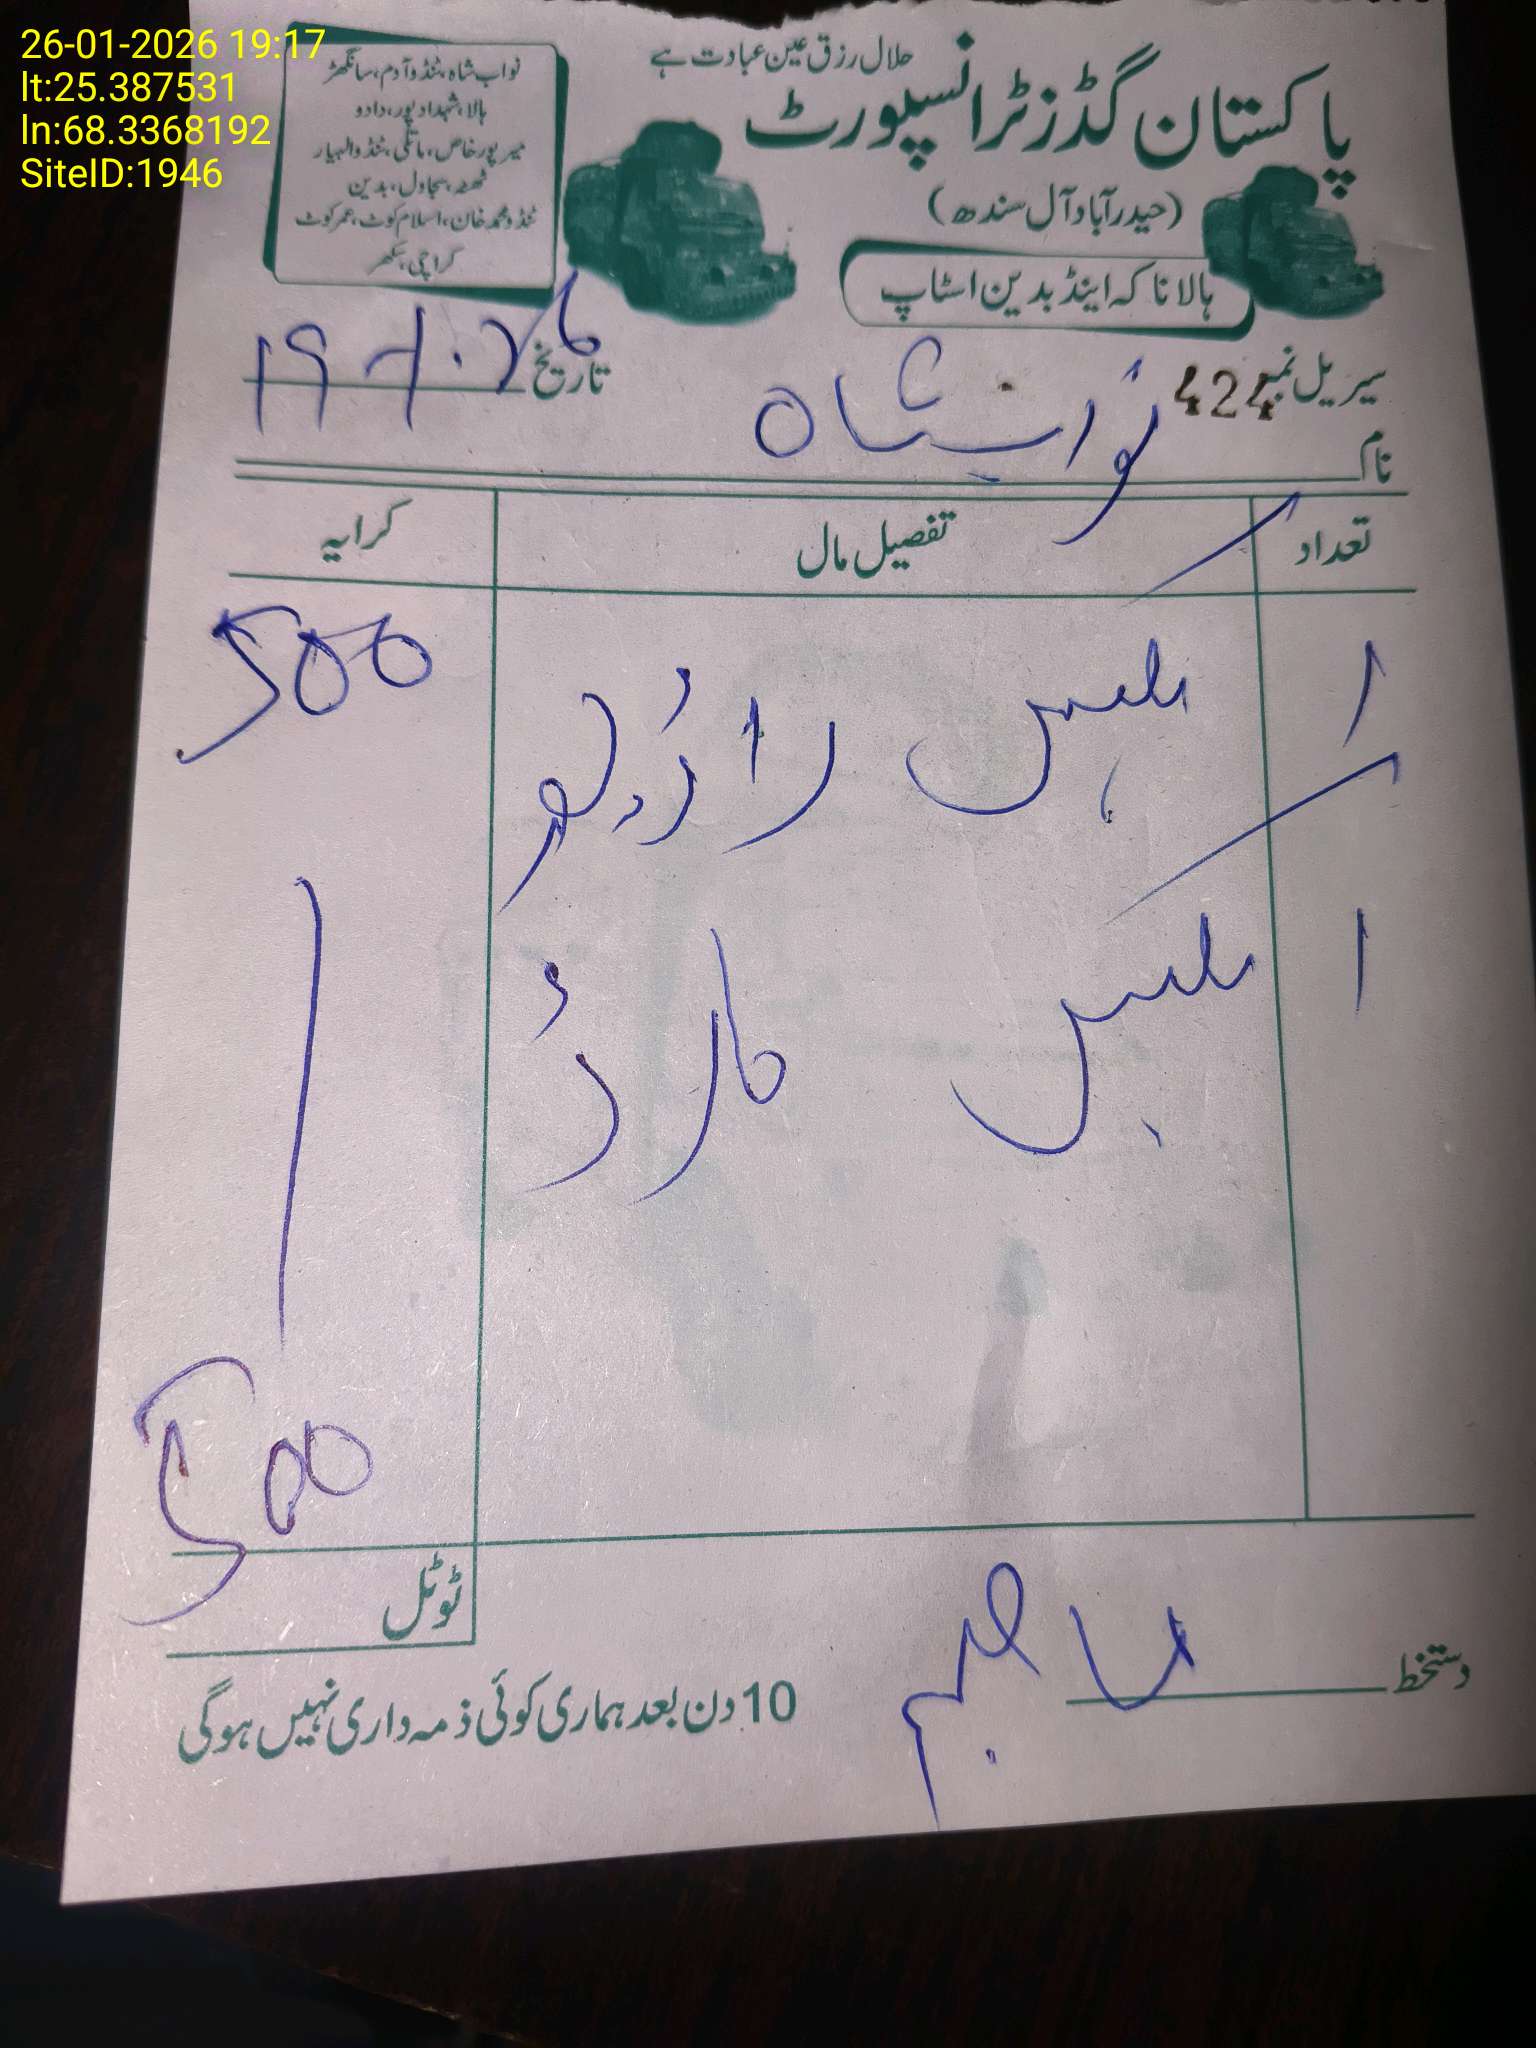 26-01-2026 19:17
lt:25.387531
ln:68.3368192
SiteID:1946
حلال رزق عین عبادت ہے
پاکستان گڈز ٹرانسپورٹ
(حیدرآباد آل سندھ)
ہالا ناکہ اینڈ بدین اسٹاپ
نواب شاہ، ٹنڈوآدم، سانگھڑ
ہالا، شہدادپور، دادو
میرپورخاص، ماتلی، ٹنڈوالہیار
ٹھٹہ، سجاول، بدین
ٹنڈومحمدخان، اسلام کوٹ، عمرکوٹ
کراچی، سکھر
سیریل نمبر 424 تاریخ
نام نواب شاہ
تعداد تفصیل مال کرایہ
1 بکس 500
1 بکس کارڈ
500
ٹوٹل
دستخط
10 دن بعد ہماری کوئی ذمہ داری نہیں ہوگی